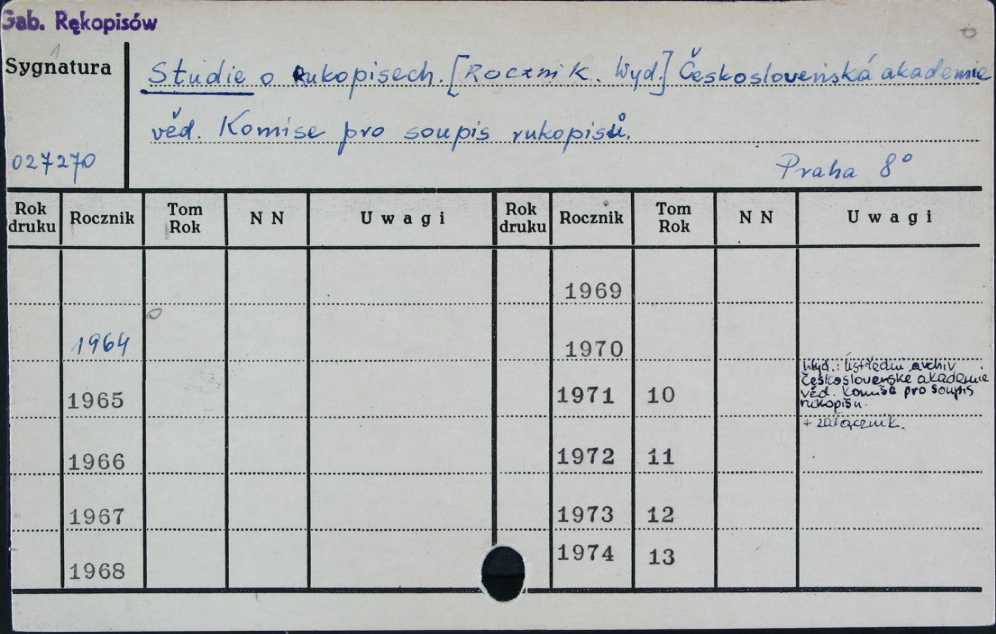 Gab. Rękopisów
Sygnatura
Studie o rukopisech. [Rocznik. Wyd.] Československá akademie
věd. Komise pro soupis rukopisů.
027270
Praha 8°
Rok druku Rocznik Tom Rok NN Uwagi Rok druku Rocznik Tom Rok NN Uwagi
1969
1964 1970
1965 1971 10 Wyd.: Ústřední archiv
Československé akademie
věd. Komise pro soupis
rukopisu.
+ załącznik.
1966 1972 11
1967 1973 12
1968 1974 13